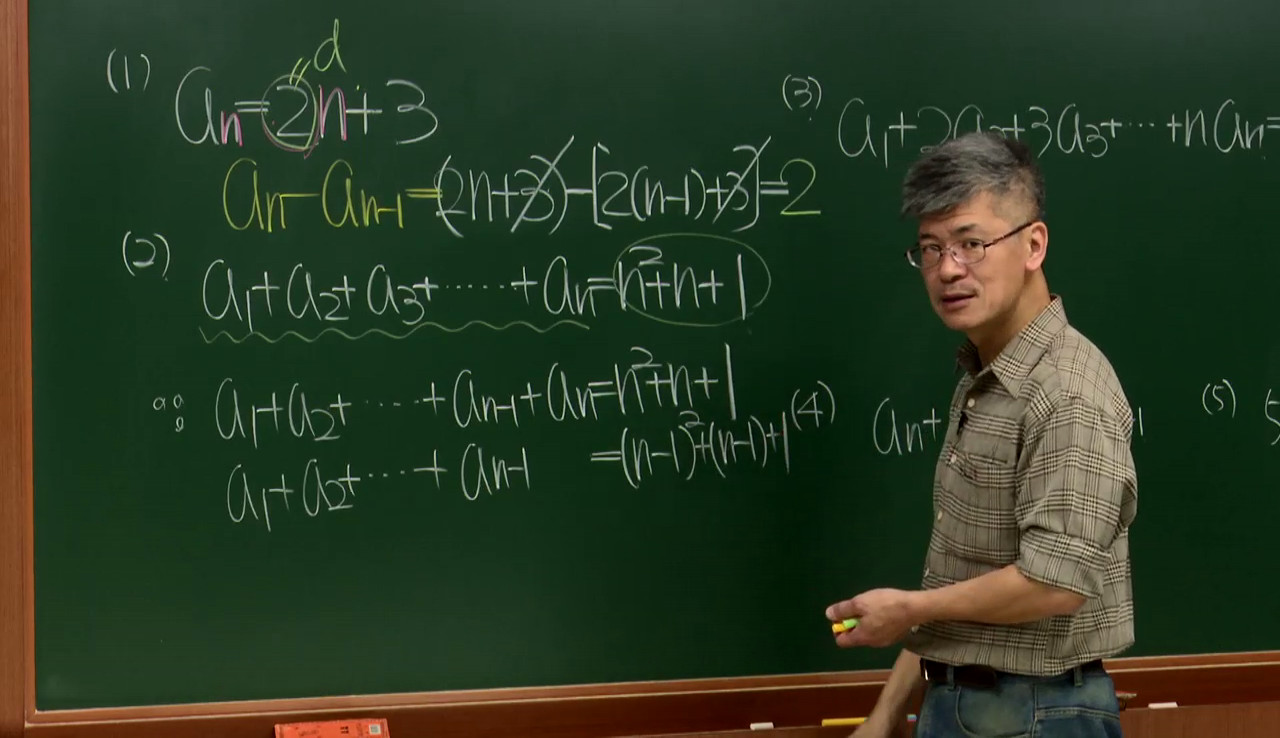 (1) aₙ=2n+3
d
aₙ-aₙ₋₁=(2n+3)-[2(n-1)+3]=2
(2) a₁+a₂+a₃+……+aₙ=n²+n+1
∴ a₁+a₂+……+aₙ₋₁+aₙ=n²+n+1
a₁+a₂+……+aₙ₋₁ =(n-1)²+(n-1)+1
(3) a₁+2a₂+3a₃+…+naₙ=
(4) aₙ+
(5)